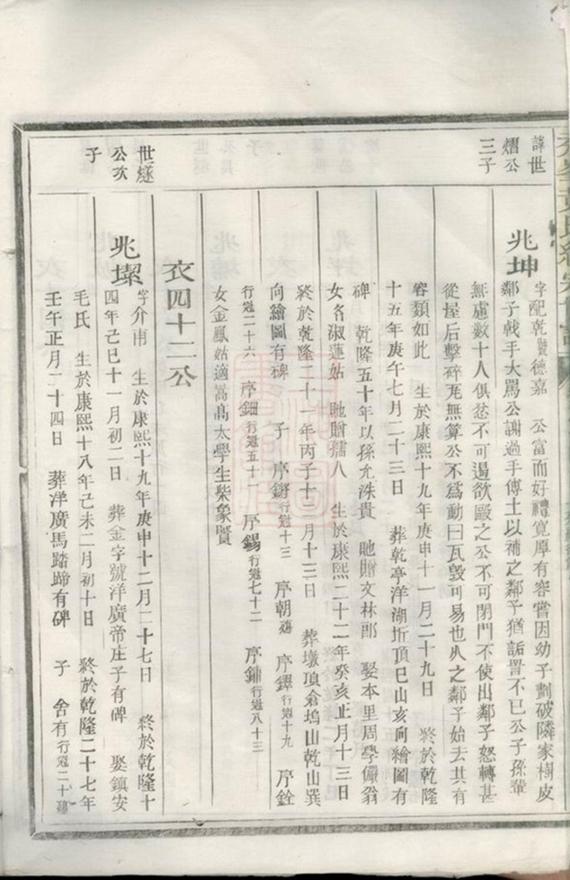 諱世
熠公
三子
兆坤
字配乾號德嘉 公富而好禮寬厚有容嘗因幼子劃破隣家樹皮
鄰子戟手大罵公謝過手傅土以補之鄰子猶詬詈不已公子孫輩
無慮數十人俱忿不可遏欲毆之公不可閉門不使出鄰子怒轉甚
從屋后擊碎瓦無算公不爲動曰瓦毀可易也久之鄰子始去其有
容類如此 生於康熙十九年庚申十一月二十九日 終於乾隆
十五年庚午七月二十三日 葬乾亭洋湖圻頂巳山亥向繪圖有
碑 乾隆五十年以孫允洙貴 貤贈文林郎 娶本里周學儼翁
女名淑蓮姑 貤贈孺人 生於康熙二十二年癸亥正月十三日
終於乾隆二十一年丙子十一月十三日 葬墩頂倉塢山乾山巽
向繪圖有碑 子 序鏘行冠十三 序朝殤 序鐸行冠十九 序銓
行冠二十六 序鈿行冠五十一 序錫行冠七十二 序鏞行冠八十三
女金鳳姑適嵩高太學生柴象賢
衣四十二公
世燧
公次
子
兆潔
字介甫 生於康熙十九年庚申十二月二十七日 終於乾隆十
四年己巳十一月初二日 葬金字號洋廣帝庄子有碑 娶鎮安
毛氏 生於康熙十八年己未二月初十日 終於乾隆二十七年
壬午正月二十四日 葬洋廣馬踏蹄有碑 子 舍有行冠二十殤